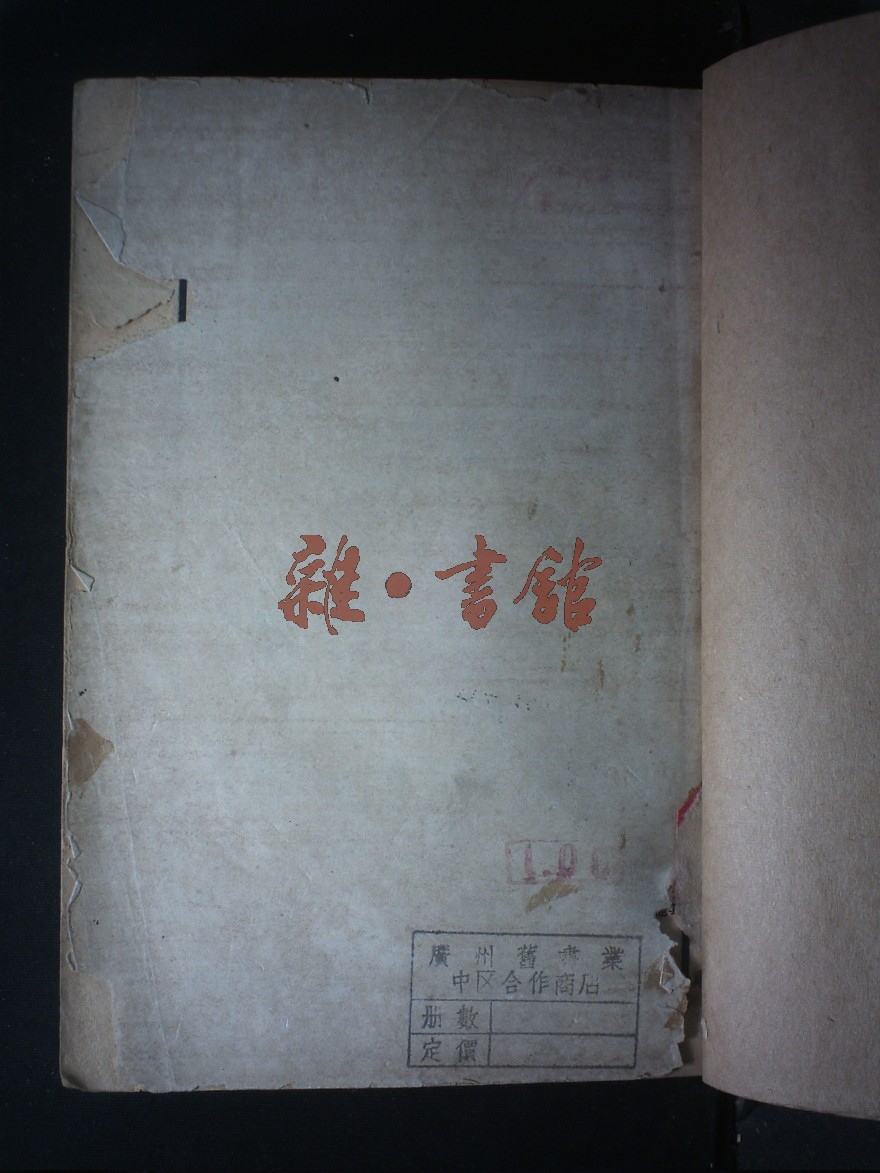 雜·書館
1.00
廣州舊書業
中区合作商店
册數
定價